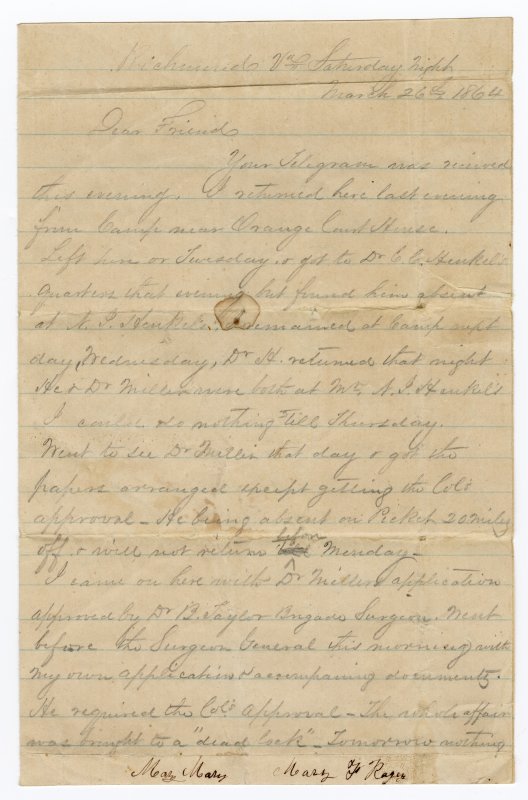 Richmond Va Saturday Night
March 26th 1864
Dear Friend
Your Telegram was recieved
this evening. I returned here last evening
from Camp near Orange Court House.
Left here on Tuesday & got to Dr C. C. Henkel's
quarters that evening but found him absent
at N. I. Henkels. I remained at Camp next
day, Wednesday, Dr H. returned that night
He & Dr Miller were both at Mr. N. I. Henkel's
I could do nothing till Thursday.
Went to see Dr Miller that day & got the
papers arranged except getting the Col's
approval – He being absent on Picket 20 miles
off & will not return before Monday –
I came on here with Dr Millers application
approved by Dr B. Taylor Brigade Surgeon. Went
before the Surgeon General this morning with
my own application & accompaning documents.
He required the Col's approval – The whole affair
was brought to a "dead lock" – Tomorrow nothing
Mary Mary Mary F